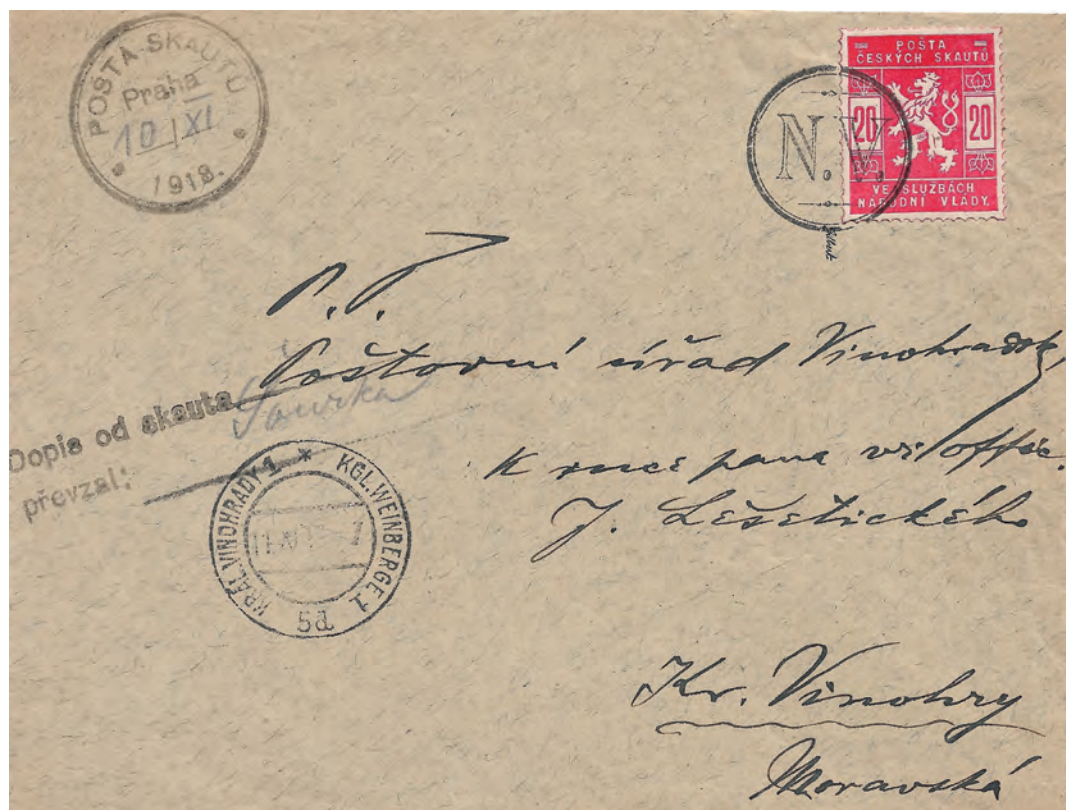 POŠTA SKAUTŮ
Praha
10 | XI
1918.
POŠTA
ČESKÝCH SKAUTŮ
20 20
VE SLUŽBÁCH
NÁRODNÍ VLÁDY.
N.V.
P. T.
Poštovní úřad Vinohradsk,
k ruce pana vrf offic.
J. Lešetického
Dopis od skauta
převzal:
KRÁL. VINOHRADY 1 * KGL. WEINBERGE 1
5d
Kr. Vinohry
Moravská